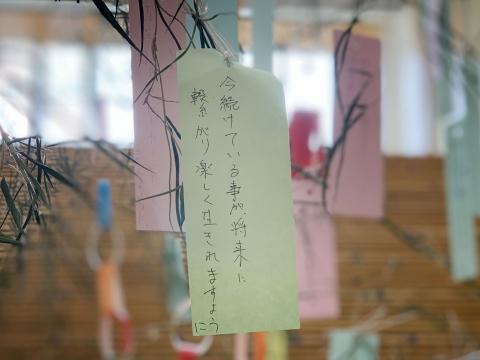 今続けている事が、将来に
繋がり楽しく生きれますように